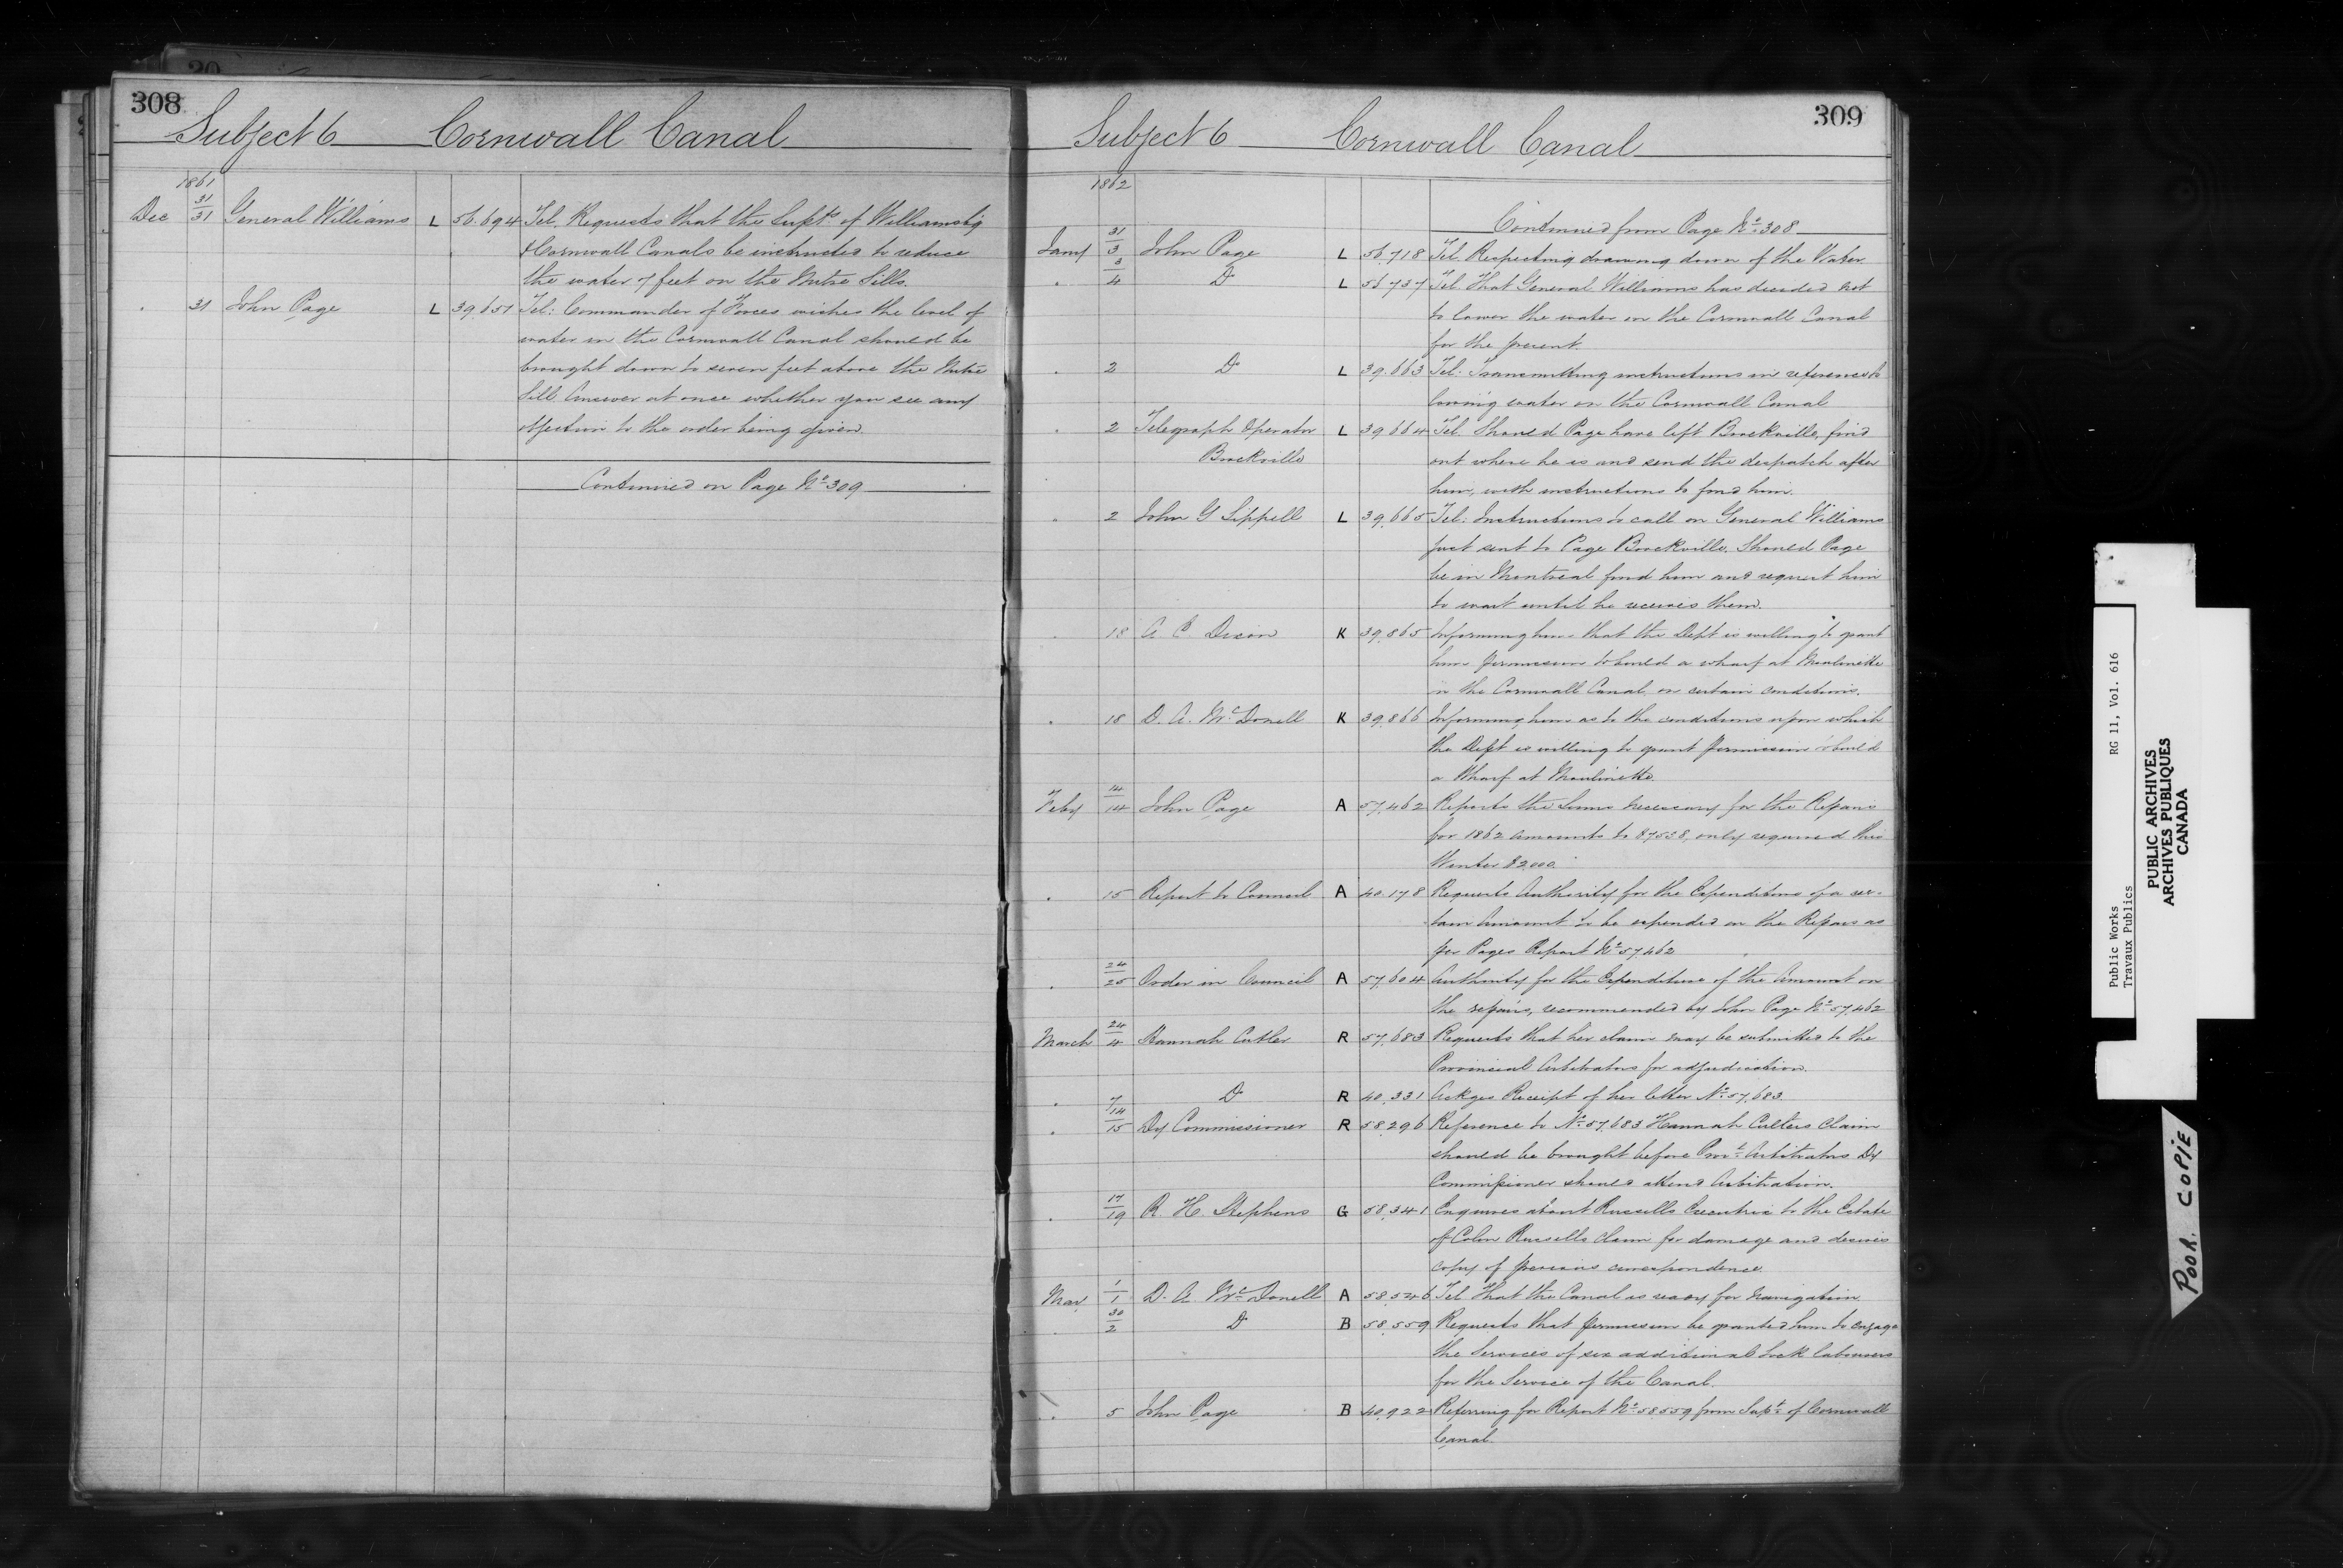 308
Subject 6 Cornwall Canal
1861
Dec 31/31 General Williams L 56.694 Tel. Requests that the Supts of Williamsbg
& Cornwall Canals be instructed to reduce
the water 7 feet on the Mitre Sills.
. 31 John Page L 39.651 Tel: Commander of Forces wishes the level of
water in the Cornwall Canal should be
brought down to seven feet above the Mitre
Sill Answer at once whether you see any
objection to the order being given.
Continued on Page No 309
309
Subject 6 Cornwall Canal
1862
Continued from Page No 308
Jany 31/3 John Page L 56.718 Tel. Respecting drawing down of the Water
. 3/4 Do L 56737 Tel. That General Williams has decided not
to lower the water in the Cornwall Canal
for the present.
. 2 Do L 39.663 Tel: Transmitting instructions in reference to
lowing water on the Cornwall Canal
. 2 Telegraph Operator L 39664 Tel. Should Page have left Brockville, find
Brockville
out where he is and send the despatch after
him, with instructions to find him.
. 2 John G Sippell L 39.665 Tel: Instructions to call on General Williams
just sent to Page Brockville. Should Page
be in Montreal find him and request him
to wait until he receives them.
. 18 A C Dixon K 39.865 Informing him that the Dept is willing to grant
him permission to build a wharf at Moulinette
in the Cornwall Canal on certain conditions.
. 18 D. A. McDonell K 39.866 Informing him as to the conditions upon which
the Dept is willing to grant permission to build
a Wharf at Moulinette.
Feby 14/14 John Page A 57.462 Reports the Sums necessary for the Repairs
for 1862 amounts to $7538, only required this
Winter $2000.
. 15 Report to Council A 40.178 Requests Authority for the Expenditure of a cer-
tain Amount to be expended on the Repairs as
per Pages Report No 57.462
. 24/25 Order in Council A 57.604 Authority for the Expenditure of the Amount on
the repairs, recommended by John Page No 57.462
March 24/4 Hannah Cutler R 57.683 Requests that her claim may be submitted to the
Provincial Arbitrators for adjudication.
. 7 Do R 40.331 Ackges Receipt of her letter No 57.683
. 14/15 Dy Commissioner R 58.296 Reference to No 57.683 Hannah Cutlers Claim
should be brought before Provl Arbitrators Dy
Commissioner should attend Arbitration.
. 17/19 R. H. Stephens G 58.341 Enquires about Russells Executrix to the Estate
of Colon Russells Claim for damage and desires
copy of previous correspondence
May 1/1 D. A. McDonell A 58.546 Tel That the Canal is ready for Navigation
. 30/2 Do B 58.559 Requests that permission be granted him to engage
the Services of six additional Lock Labourers
for the Service of the Canal.
. 5 John Page B 40.922 Referring for Report No 58559 from Supt of Cornwall
Canal.
Public Works RG 11, Vol. 616
Travaux Publics
PUBLIC ARCHIVES
ARCHIVES PUBLIQUES
CANADA
POOR COPIE